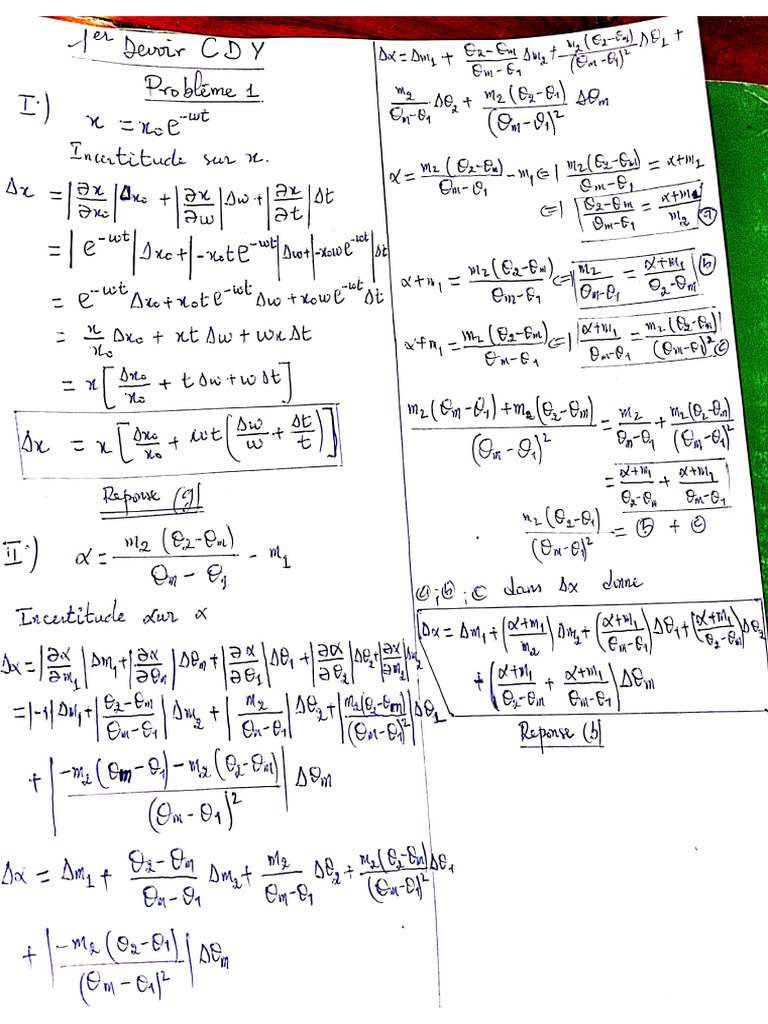 1er Devoir CDY
Problème 1
I.) x = x₀e^{-wt}
Incertitude sur x.
Δx = |∂x/∂x₀|Δx₀ + |∂x/∂w|Δw + |∂x/∂t|Δt
= |e^{-wt}|Δx₀ + |-x₀te^{-wt}|Δw + |-x₀we^{-wt}|Δt
= e^{-wt}Δx₀ + x₀te^{-wt}Δw + x₀we^{-wt}Δt
= x/x₀ Δx₀ + xtΔw + wxΔt
= x[Δx₀/x₀ + tΔw + wΔt]
Δx = x[Δx₀/x₀ + wt(Δw/w + Δt/t)]
Reponse (g)
II.) α = m₂(θ₂-θm)/(θm-θ₁) - m₁
Incertitude sur α
Δα = |∂α/∂m₁|Δm₁ + |∂α/∂θm|Δθm + |∂α/∂θ₁|Δθ₁ + |∂α/∂θ₂|Δθ₂ + |∂α/∂m₂|Δm₂
= |-1|Δm₁ + |(θ₂-θm)/(θm-θ₁)|Δm₂ + |m₂/(θm-θ₁)|Δθ₂ + |m₂(θ₂-θm)/(θm-θ₁)²|Δθ₁
+ |(-m₂(θm-θ₁)-m₂(θ₂-θm))/(θm-θ₁)²|Δθm
Δα = Δm₁ + (θ₂-θm)/(θm-θ₁) Δm₂ + m₂/(θm-θ₁) Δθ₂ + m₂(θ₂-θm)/(θm-θ₁)² Δθ₁
+ |-m₂(θ₂-θ₁)/(θm-θ₁)²|Δθm
Δα = Δm₁ + (θ₂-θm)/(θm-θ₁) Δm₂ + m₂(θ₂-θm)/(θm-θ₁)² Δθ₁ +
m₂/(θm-θ₁) Δθ₂ + m₂(θ₂-θ₁)/(θm-θ₁)² Δθm
α = m₂(θ₂-θm)/(θm-θ₁) - m₁ <=> m₂(θ₂-θm)/(θm-θ₁) = α+m₁
<=> (θ₂-θm)/(θm-θ₁) = (α+m₁)/m₂ (a)
α+m₁ = m₂(θ₂-θm)/(θm-θ₁) <=> m₂/(θm-θ₁) = (α+m₁)/(θ₂-θm) (b)
α+m₁ = m₂(θ₂-θm)/(θm-θ₁) <=> (α+m₁)/(θm-θ₁) = m₂(θ₂-θm)/(θm-θ₁)² (c)
(m₂(θm-θ₁)+m₂(θ₂-θm))/(θm-θ₁)² = m₂/(θm-θ₁) + m₂(θ₂-θm)/(θm-θ₁)²
= (α+m₁)/(θ₂-θm) + (α+m₁)/(θm-θ₁)
m₂(θ₂-θ₁)/(θm-θ₁)² = (b) + (c)
(a) ; (b) ; (c) dans Δα donne
Δα = Δm₁ + ((α+m₁)/m₂)Δm₂ + ((α+m₁)/(θm-θ₁))Δθ₁ + ((α+m₁)/(θ₂-θm))Δθ₂
+ ((α+m₁)/(θ₂-θm) + (α+m₁)/(θm-θ₁))Δθm
Reponse (b)